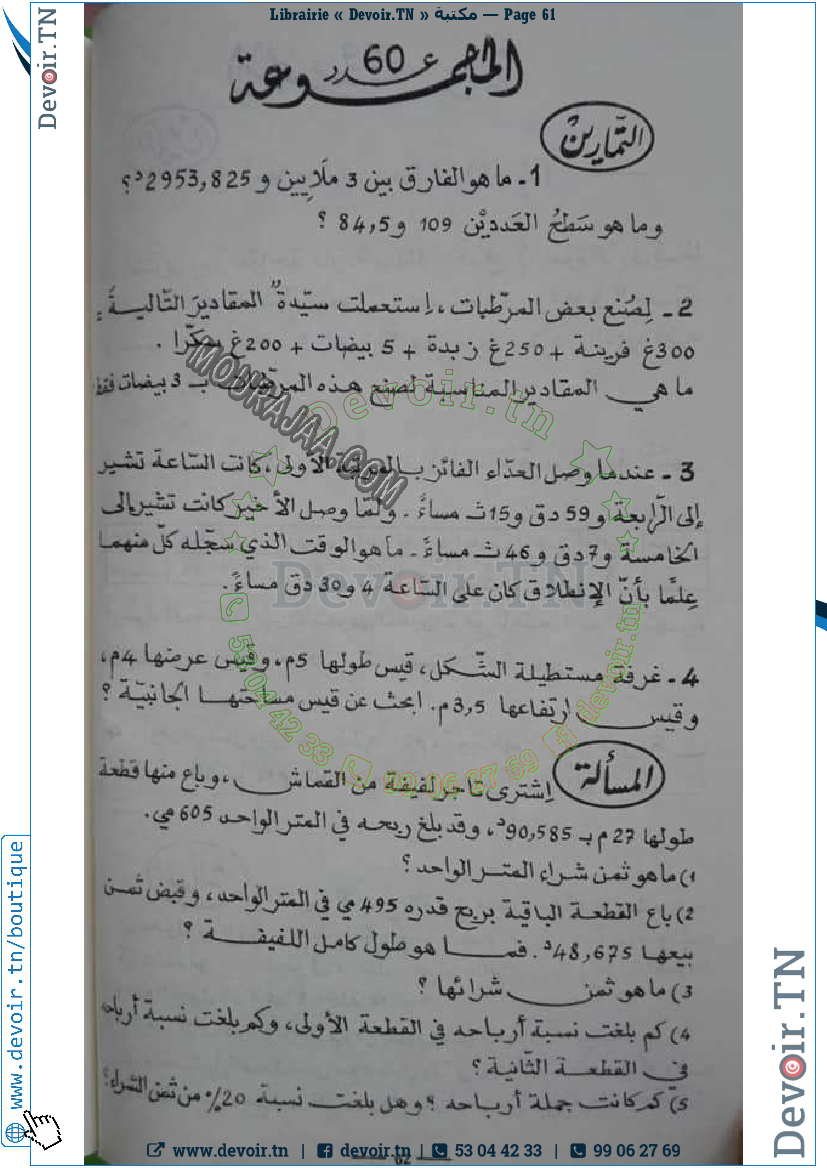 Librairie « Devoir.TN » مكتبة — Page 61
Devoir.TN
المجموعة عدد 60
التمارين
1 - ما هو الفارق بين 3 ملايين و 2953,825د؟
وما هو سَطحُ العَدديْن 109 و 84,5 ؟
2 - لِصُنع بعض المرطّبات، اِستعملت سيّدة المقاديرَ التّاليةَ :
300غ فرينة + 250غ زبدة + 5 بيضات + 200غ سكّرا .
ما هي المقادير المناسبة لصنع هذه المرطّبات بـ 3 بيضات فقط
3 - عندما وصل العدّاء الفائز بالمرتبة الأولى، كانت السّاعة تشير
إلى الرّابعة و 59 دق و 15 ث مساءً . ولمّا وصل الأخير كانت تشير إلى
الخامسة و 7 دق و 46 ث مساءً . ما هو الوقت الذي سجّله كلّ منهما
عِلمًا بأنّ الإنطلاق كان على السّاعة 4 و 30 دق مساءً .
4 - غرفة مستطيلة الشّكل، قيس طولها 5م، وقيس عرضها 4م،
وقيس ارتفاعها 3,5م. ابحث عن قيس مساحتها الجانبيّة ؟
المسألة
اِشترى تاجر لفيفة من القماش، وباع منها قطعة
طولها 27 م بـ 90,585د، وقد بلغ ربحه في المتر الواحد 605 مي.
1) ما هو ثمن شراء المتر الواحد ؟
2) باع القطعة الباقية بربح قدره 495 مي في المتر الواحد، وقبض ثمن
بيعها 48,675د. فما هو طول كامل اللفيفة ؟
3) ما هو ثمن شرائها ؟
4) كم بلغت نسبة أرباحه في القطعة الأولى، وكم بلغت نسبة أرباحه
في القطعة الثّانية ؟
5) كم كانت جملة أرباحه ؟ وهل بلغت نسبة 20% من ثمن الشراء؟
MOURAJAA.COM
Devoir.tn
Devoir.TN
53 04 42 33
99 06 27 69
devoir.tn
www.devoir.tn/boutique
Devoir.TN
62
www.devoir.tn | devoir.tn | 53 04 42 33 | 99 06 27 69